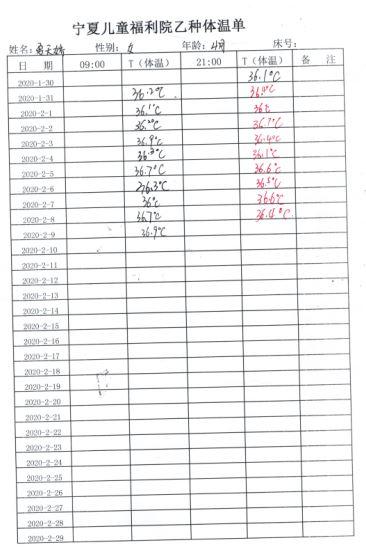 宁夏儿童福利院乙种体温单
姓名: 性别: 女 年龄: 4月 床号:
日 期 09:00 T(体温) 21:00 T(体温) 备 注
2020-1-30 36.1°C
2020-1-31 36.2°C 36.4°C
2020-2-1 36.1°C 36°C
2020-2-2 36.2°C 36.7°C
2020-2-3 36.9°C 36.4°C
2020-2-4 36.3°C 36.1°C
2020-2-5 36.7°C 36.6°C
2020-2-6 36.3°C 36.5°C
2020-2-7 36°C 36.6°C
2020-2-8 36.7°C 36.4°C
2020-2-9 36.9°C
2020-2-10
2020-2-11
2020-2-12
2020-2-13
2020-2-14
2020-2-15
2020-2-16
2020-2-17
2020-2-18
2020-2-19
2020-2-20
2020-2-21
2020-2-22
2020-2-23
2020-2-24
2020-2-25
2020-2-26
2020-2-27
2020-2-28
2020-2-29